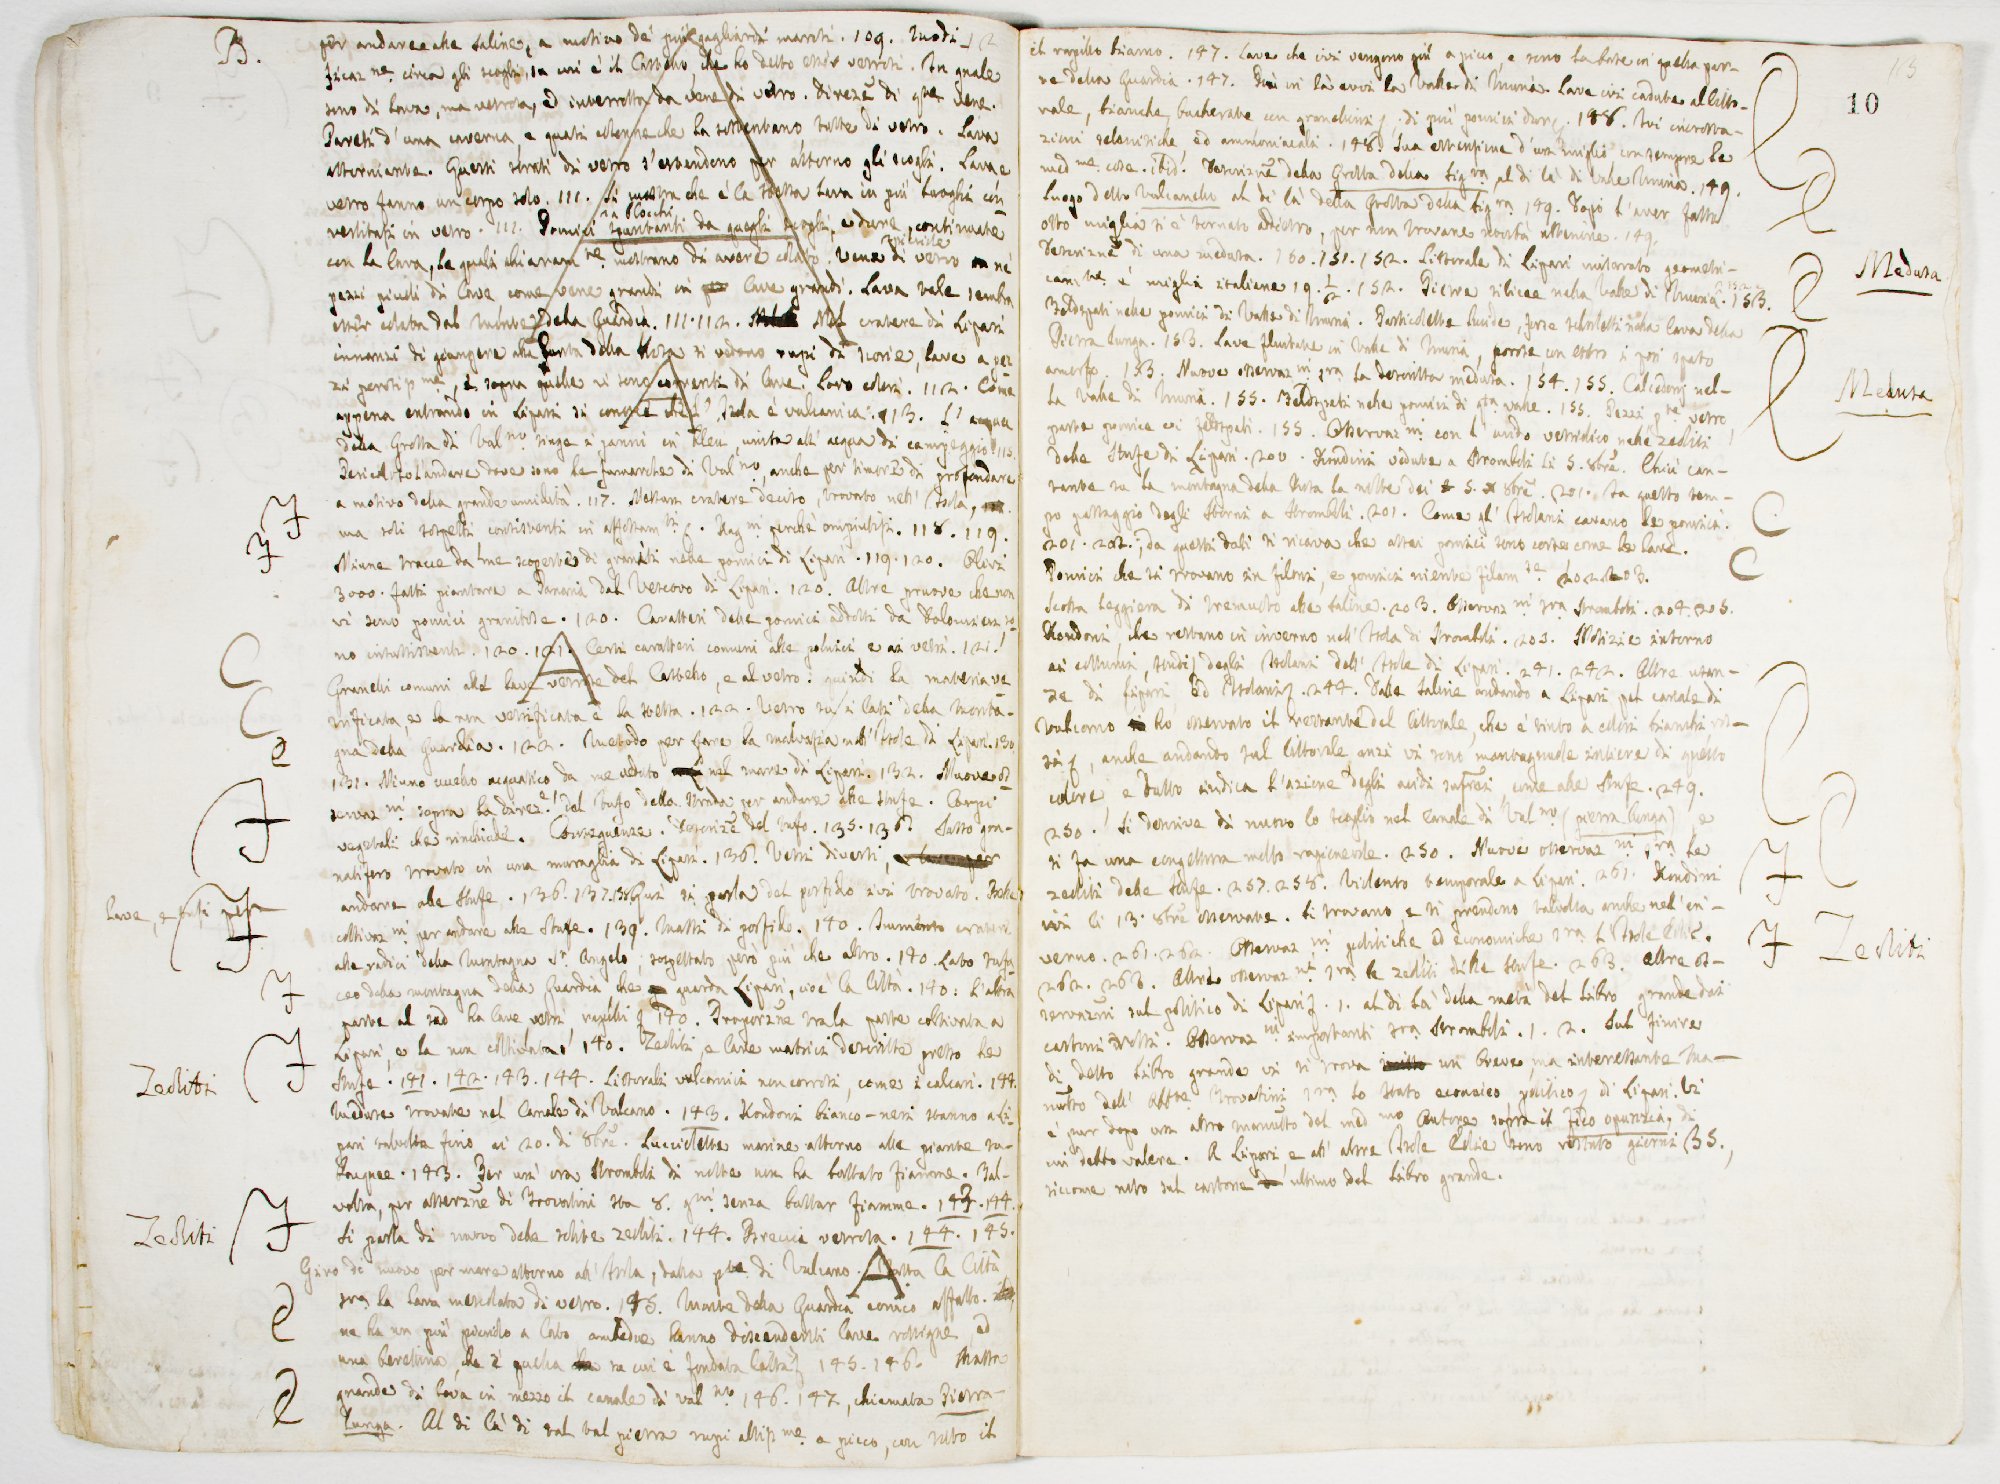 B.
per andare alle saline, a motivo de' più gagliardi marosi. 109. Modi-
ficaz.ne circa gli scogli su cui è il Castello, che ho detto esser vetrosi. In quale
sono di lava, ma vetrosa, ed interrotta da vene di vetro. Direzne di qte vene.
Pareti d'una caverna e quasi colonne che la sostentano tutte di vetro. Lava
attorniante. Questi strati di vetro s'estendono per attorno gli scogli. Lava e
vetro fanno un corpo solo. 111. Si mostra che è la stessa lava in più luoghi con
su blocchi
vertitasi in vetro. 111. Pomici spuntanti da quegli scogli, e dure, continuate
con la lava, le quali chiaram.te mostrano di avere colato. Vene di vetro in né
picciole
pezzi piccoli di lave come vene grandi in lave grandi. Lava vale sembra
esser colata dal monte della Guardia. 111. 112. Nel cratere di Lipari
innanzi di giungere alla punta della si vedono rupi di scorie, lave a pez
zi perosi p.me, e sopra quelle vi sono correnti di lave. Loro colori. 112. Come
appena entrando in Lipari si conosce che l'Isola è vulcanica. 113. L'acqua
della Grotta di Val.no tinge i panni in bleu, unita all'acqua di campeggio. 115.
Pericoloso l'andare dove sono le fumarole di Val.no, anche per timore di profondare
a motivo della grande umidità. 117. Nessun cratere deciso, trovato nell'Isola,
ma soli sospetti consistenti in affossam.ti. Rag.ni perché ampiutisi. 118. 119.
Niune tracce da me scoperte di graniti nelle pomici di Lipari. 119. 120. Olivi
3000. fatti piantare a Panaria dal Vescovo di Lipari. 120. Altre pruove che non
vi sono pomici granitose. 120. Caratteri delle pomici addotti da Dolomieu so-
no insussistenti. 120. 121. Certi caratteri comuni alle pomici e ai vetri. 121.
Granelli comuni alle lave vetrose del Castello, e al vetro: quindi la materia ve
trificata, e la non vetrificata è la stessa. 122. Vetro su i lati della monta-
gna della Guardia. 122. Metodo per fare la malvasia nell'Isole di Lipari. 130
131. Niuno uccello acquatico da me veduto nel mare di Lipari. 132. Nuove os
servaz.ni sopra la direz.e del tufo della strada per andare alle stufe. Corpi
vegetali che rinchiude. Conseguenze. Descrizne del tufo. 135. 136. Sasso gra-
natifero trovato in una muraglia di Lipari. 136. Vetri diversi,
Lave, e tufi per
andare alle Stufe. 136. 137. 138. Qui si parla del porfido ivi trovato. Isole
coltivaz.ni per andare alle Stufe. 139. Massi di porfido. 140. cratere
alle radici della Montagna S.t Angelo; sospettato però più che altro. 140. Lato tufa
ceo della montagna della Guardia che guarda Lipari, cioè la Città. 140: L'altra
parte al sud ha lave, vetri, 140. Proporzne tra la parte coltivata a
Lipari, e la non coltivata. 140. Zeoliti, e lave matrici descritte presso le
Zeoliti
Stufe. 141. 142. 143. 144. Littorali vulcanici non corrosi, come i calcari. 144.
Meduse trovate nel Canale di Vulcano. 143. Rondoni bianco-neri stanno a Li-
pari talvolta fino ai 20. di 8bre. Luccioletta marine attorno alle piante
143. Per un'ora Stromboli di notte non ha buttato fiamme. Tal-
volta, per asserzne di Trovatini sta 8. gni senza buttar fiamme. 143. 144.
Zeoliti
Si parla di nuovo delle solite zeoliti. 144. Breccia vetrosa. 144. 145.
Giro di nuovo per mare attorno all'Isola, dalla pte di Vulcano. Sotta la Città
sta la lava mescolata di vetro. 145. Monte della Guardia conico affatto.
ne ha un più piccolo a lato amendue hanno discendenti lave rossigne, ed
una berettina, che è quella su cui è fondata Città 145. 146. Massa
grande di lava in mezzo il canale di Val.no 146. 147, chiamata Pietra-
Lunga. Al di là di tal pietra rupi altis.me a picco, con sotto il
10
il rapillo bianco. 147. Lave che ivi vengono più a picco, e sono lavate in quella par-
te della Guardia. 147. Più in là evvi la Valle di Muria. Lave ivi cadute al litto-
rale, bianche, bucherate con grandiosi, di più pomici dure. 148. Ivi incrosta-
zioni selenitiche ed ammoniacali. 148. Sua estensione d'un miglio con sempre le
med.me cose. ibid. Descrizne della Grotta della Sig.ra al di là di Valle Muria. 149.
Luogo detto Vulcanello al di là della Grotta della Sig.ra 149. Dopo l'aver fatto
otto miglia si è tornato addietro, per non trovare novità ulteriore. 149.
Medusa
Descrizne di una medusa. 150. 151. 152. Littorale di Lipari misurato geometri-
cam.te è miglia italiane 19. 1/2. 152. Pietre silicee nella Valle di Muria. 153.
Feldspati nelle pomici di Valle di Muria. Particolette lucide, forse scherletti nella lava della
Pietra lunga. 153. Lave fluitate in Valle di Muria, porose con entro i pori spato
amorfo. 153. Nuove osservaz.ni sra la descritta medusa. 154. 155. Calcedonj nel-
Medusa
la Valle di Muria. 155. Feldspati nelle pomici di qta valle. 155. Pezzi pte vetro
parte pomice coi feldspati. 155. Osservaz.ni con l'acido vetriolico nelle zeoliti
delle Stufe di Lipari. 200. Rondini vedute a Stromboli li 5. 8bre. Chiù can-
tante su la montagna della la notte dei 5. 8bre. 201. In questo tem-
po passaggio degli Storni a Stromboli. 201. Come gl'Isolani cavano le pomici.
201. 202.; da questi dati si ricava che altre pomici sono corse come le lave.
Pomici che si trovano in filoni, e pomici niente filam.se 202. 203.
Scossa leggiera di tremuoto alle saline. 203. Osservaz.ni sra Stromboli. 204. 205.
Rondoni che restano in inverno nell'Isola di Stromboli. 205. Notizie intorno
ai costumi, studi degli Isolani dell'Isole di Lipari. 241. 242. Altre usan-
ze di Lipari Ed Isolani. 244. Dalle Saline andando a Lipari pel canale di
Vulcano ho osservato il restante del littorale, che è tinto a colori bianchi, ros-
si, anche andando sul littorale, anzi vi sono montagnuole intiere di questo
colore, e tutto indica l'azione degli acidi sulfurei, come alle Stufe. 249.
250. Si descrive di nuovo lo scoglio nel Canale di Val.no (pietra lunga), e
si fa una congettura molto ragionevole. 250. Nuove osservaz.ni sra le
zeoliti delle Stufe. 257. 258. Violento temporale a Lipari. 261. Rondini
ivi li 13. 8bre osservate. Si trovano e si prendono talvolta anche nell'in-
Zeoliti
verno. 261. 262. Osservaz.ni politiche ed economiche sra l'Isole Eolie.
262. 263. Altre osservaz.ni sra le zeoliti delle Stufe. 263. Altre os-
servazni sul politico di Lipari. 1. al di là della metà del Libro grande dai
cartoni rossi. Osservaz.ni importanti sra Stromboli. 1. 2. Sul finire
di detto Libro grande vi si trova un breve, ma interessante ma-
nusto dell'Abte Trovatini sra lo stato economico, politico di Lipari. Vi
è pur dopo un altro manusto del med.mo Autore sopra il fico opunzia, di
un detto valore. A Lipari, e all'altre Isole Eolie sono restato giorni 35.,
siccome noto sul cartone ultimo del Libro grande.